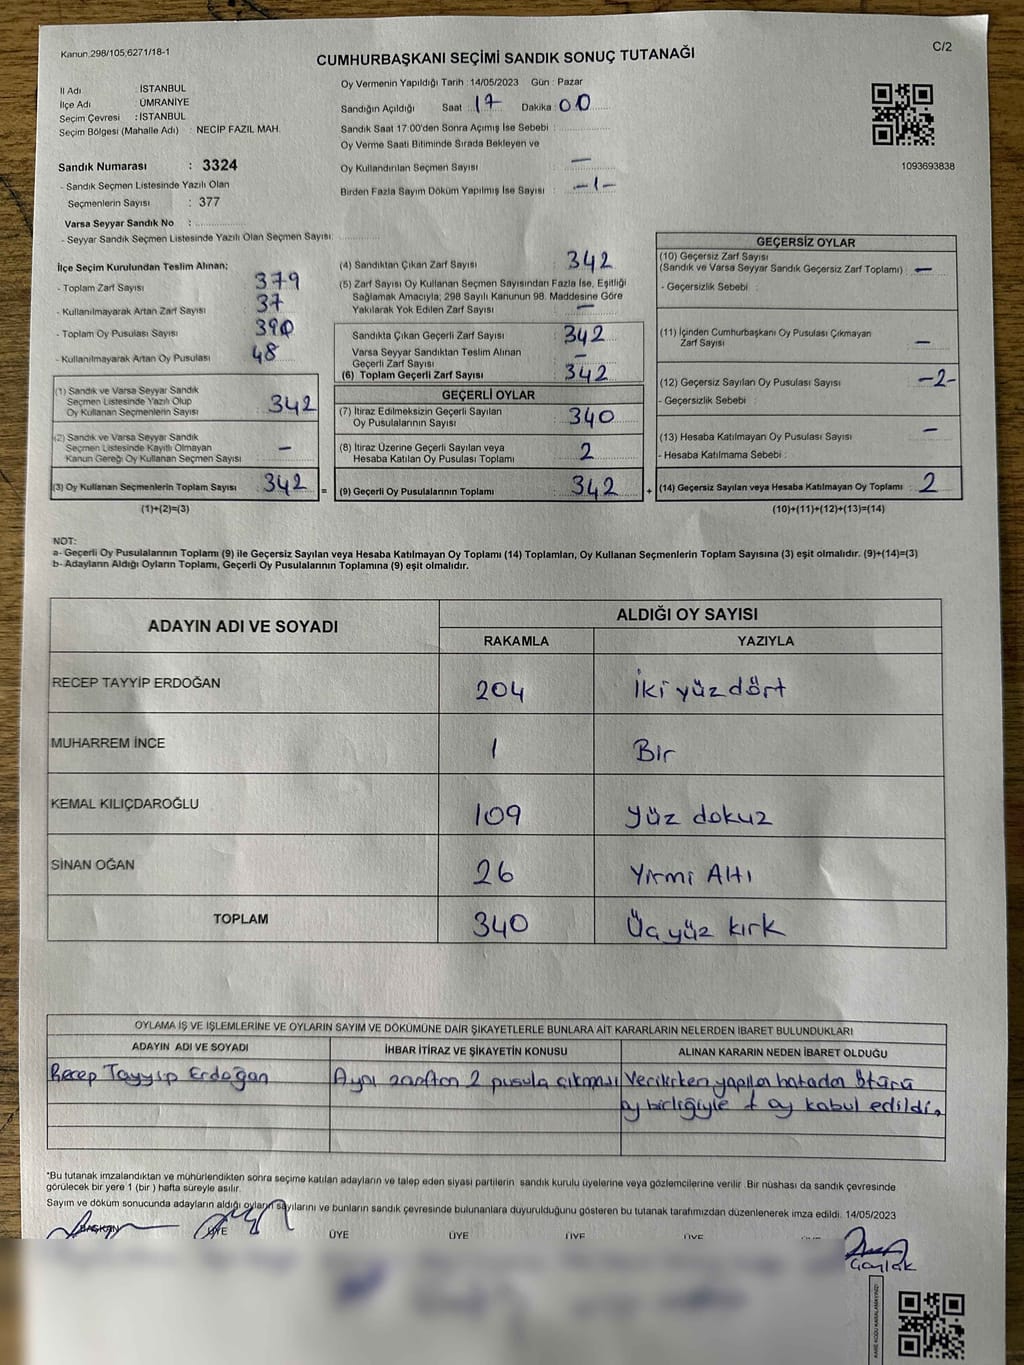 Kanun:298/105;6271/18-1
C/2
CUMHURBAŞKANI SEÇİMİ SANDIK SONUÇ TUTANAĞI
İl Adı : İSTANBUL
İlçe Adı : ÜMRANİYE
Seçim Çevresi : İSTANBUL
Seçim Bölgesi (Mahalle Adı) : NECİP FAZIL MAH.
Oy Vermenin Yapıldığı Tarih :14/05/2023 Gün : Pazar
Sandığın Açıldığı Saat : 17 Dakika : 00
Sandık Saat 17:00'den Sonra Açımış İse Sebebi :
Oy Verme Saati Bitiminde Sırada Bekleyen ve
Oy Kullandırılan Seçmen Sayısı : —
Birden Fazla Sayım Döküm Yapılmış İse Sayısı : -1-
1093693838
Sandık Numarası : 3324
- Sandık Seçmen Listesinde Yazılı Olan
Seçmenlerin Sayısı : 377
Varsa Seyyar Sandık No :
- Seyyar Sandık Seçmen Listesinde Yazılı Olan Seçmen Sayısı:
İlçe Seçim Kurulundan Teslim Alınan;
- Toplam Zarf Sayısı : 379
- Kullanılmayarak Artan Zarf Sayısı : 37
- Toplam Oy Pusulası Sayısı : 390
- Kullanılmayarak Artan Oy Pusulası : 48
(1) Sandık ve Varsa Seyyar Sandık
Seçmen Listesinde Yazılı Olup
Oy Kullanan Seçmenlerin Sayısı : 342
(2) Sandık ve Varsa Seyyar Sandık
Seçmen Listesinde Kayıtlı Olmayan
Kanun Gereği Oy Kullanan Seçmen Sayısı : -
(3) Oy Kullanan Seçmenlerin Toplam Sayısı : 342
(1)+(2)=(3)
(4) Sandıktan Çıkan Zarf Sayısı : 342
(5) Zarf Sayısı Oy Kullanan Seçmen Sayısından Fazla İse, Eşitliği
Sağlamak Amacıyla; 298 Sayılı Kanunun 98. Maddesine Göre
Yakılarak Yok Edilen Zarf Sayısı : —
Sandıkta Çıkan Geçerli Zarf Sayısı : 342
Varsa Seyyar Sandıktan Teslim Alınan
Geçerli Zarf Sayısı : -
(6) Toplam Geçerli Zarf Sayısı : 342
=
GEÇERLİ OYLAR
(7) İtiraz Edilmeksizin Geçerli Sayılan
Oy Pusulasının Sayısı : 340
(8) İtiraz Üzerine Geçerli Sayılan veya
Hesaba Katılan Oy Pusulası Toplamı : 2
(9) Geçerli Oy Pusulalarının Toplamı : 342
+
GEÇERSİZ OYLAR
(10) Geçersiz Zarf Sayısı
(Sandık ve Varsa Seyyar Sandık Geçersiz Zarf Toplamı) : —
- Geçersizlik Sebebi :
(11) İçinden Cumhurbaşkanı Oy Pusulası Çıkmayan
Zarf Sayısı : —
(12) Geçersiz Sayılan Oy Pusulası Sayısı : -2-
- Geçersizlik Sebebi :
(13) Hesaba Katılmayan Oy Pusulası Sayısı : —
- Hesaba Katılmama Sebebi :
(14) Geçersiz Sayılan veya Hesaba Katılmayan Oy Toplamı : 2
(10)+(11)+(12)+(13)=(14)
NOT:
a- Geçerli Oy Pusulalarının Toplamı (9) ile Geçersiz Sayılan veya Hesaba Katılmayan Oy Toplamı (14) Toplamları, Oy Kullanan Seçmenlerin Toplam Sayısına (3) eşit olmalıdır. (9)+(14)=(3)
b- Adayların Aldığı Oyların Toplamı, Geçerli Oy Pusulalarının Toplamına (9) eşit olmalıdır.
ADAYIN ADI VE SOYADI ALDIĞI OY SAYISI
RAKAMLA YAZIYLA
RECEP TAYYİP ERDOĞAN 204 İki yüz dört
MUHARREM İNCE 1 Bir
KEMAL KILIÇDAROĞLU 109 Yüz dokuz
SİNAN OĞAN 26 Yirmi Altı
TOPLAM 340 Üç yüz kırk
OYLAMA İŞ VE İŞLEMLERİNE VE OYLARIN SAYIM VE DÖKÜMÜNE DAİR ŞİKAYETLERLE BUNLARA AİT KARARLARIN NELERDEN İBARET BULUNDUKLARI
ADAYIN ADI VE SOYADI İHBAR İTİRAZ VE ŞİKAYETİN KONUSU ALINAN KARARIN NEDEN İBARET OLDUĞU
Recep Tayyip Erdoğan Aynı zarftan 2 pusula çıkması Verilirken yapılan hatadan ötürü
oy birliğiyle oy kabul edildi.
*Bu tutanak imzalandıktan ve mühürlendikten sonra seçime katılan adayların ve talep eden siyasi partilerin sandık kurulu üyelerine veya gözlemcilerine verilir .Bir nüshası da sandık çevresinde
görülecek bir yere 1 (bir ) hafta süreyle asılır.
Sayım ve döküm sonucunda adayların aldığı oyların sayılarını ve bunların sandık çevresinde bulunanlara duyurulduğunu gösteren bu tutanak tarafımızdan düzenlenerek imza edildi. 14/05/2023
BAŞKAN ÜYE ÜYE ÜYE ÜYE